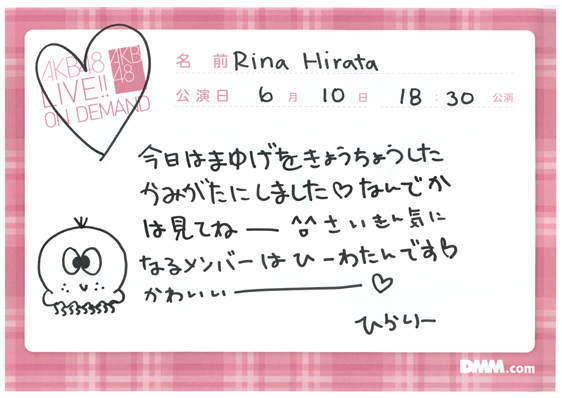 AKB48
LIVE!!
ON DEMAND
AKB
48
名 前 Rina Hirata
公演日 6 月 10 日 18:30 公演
今日はまゆげをきょうちょうした
かみがたにしました♡なんでか
は見てねー ^^さいきん気に
なるメンバーはひーわたんです♡
かわいいー♡
ひらりー
DMM.com